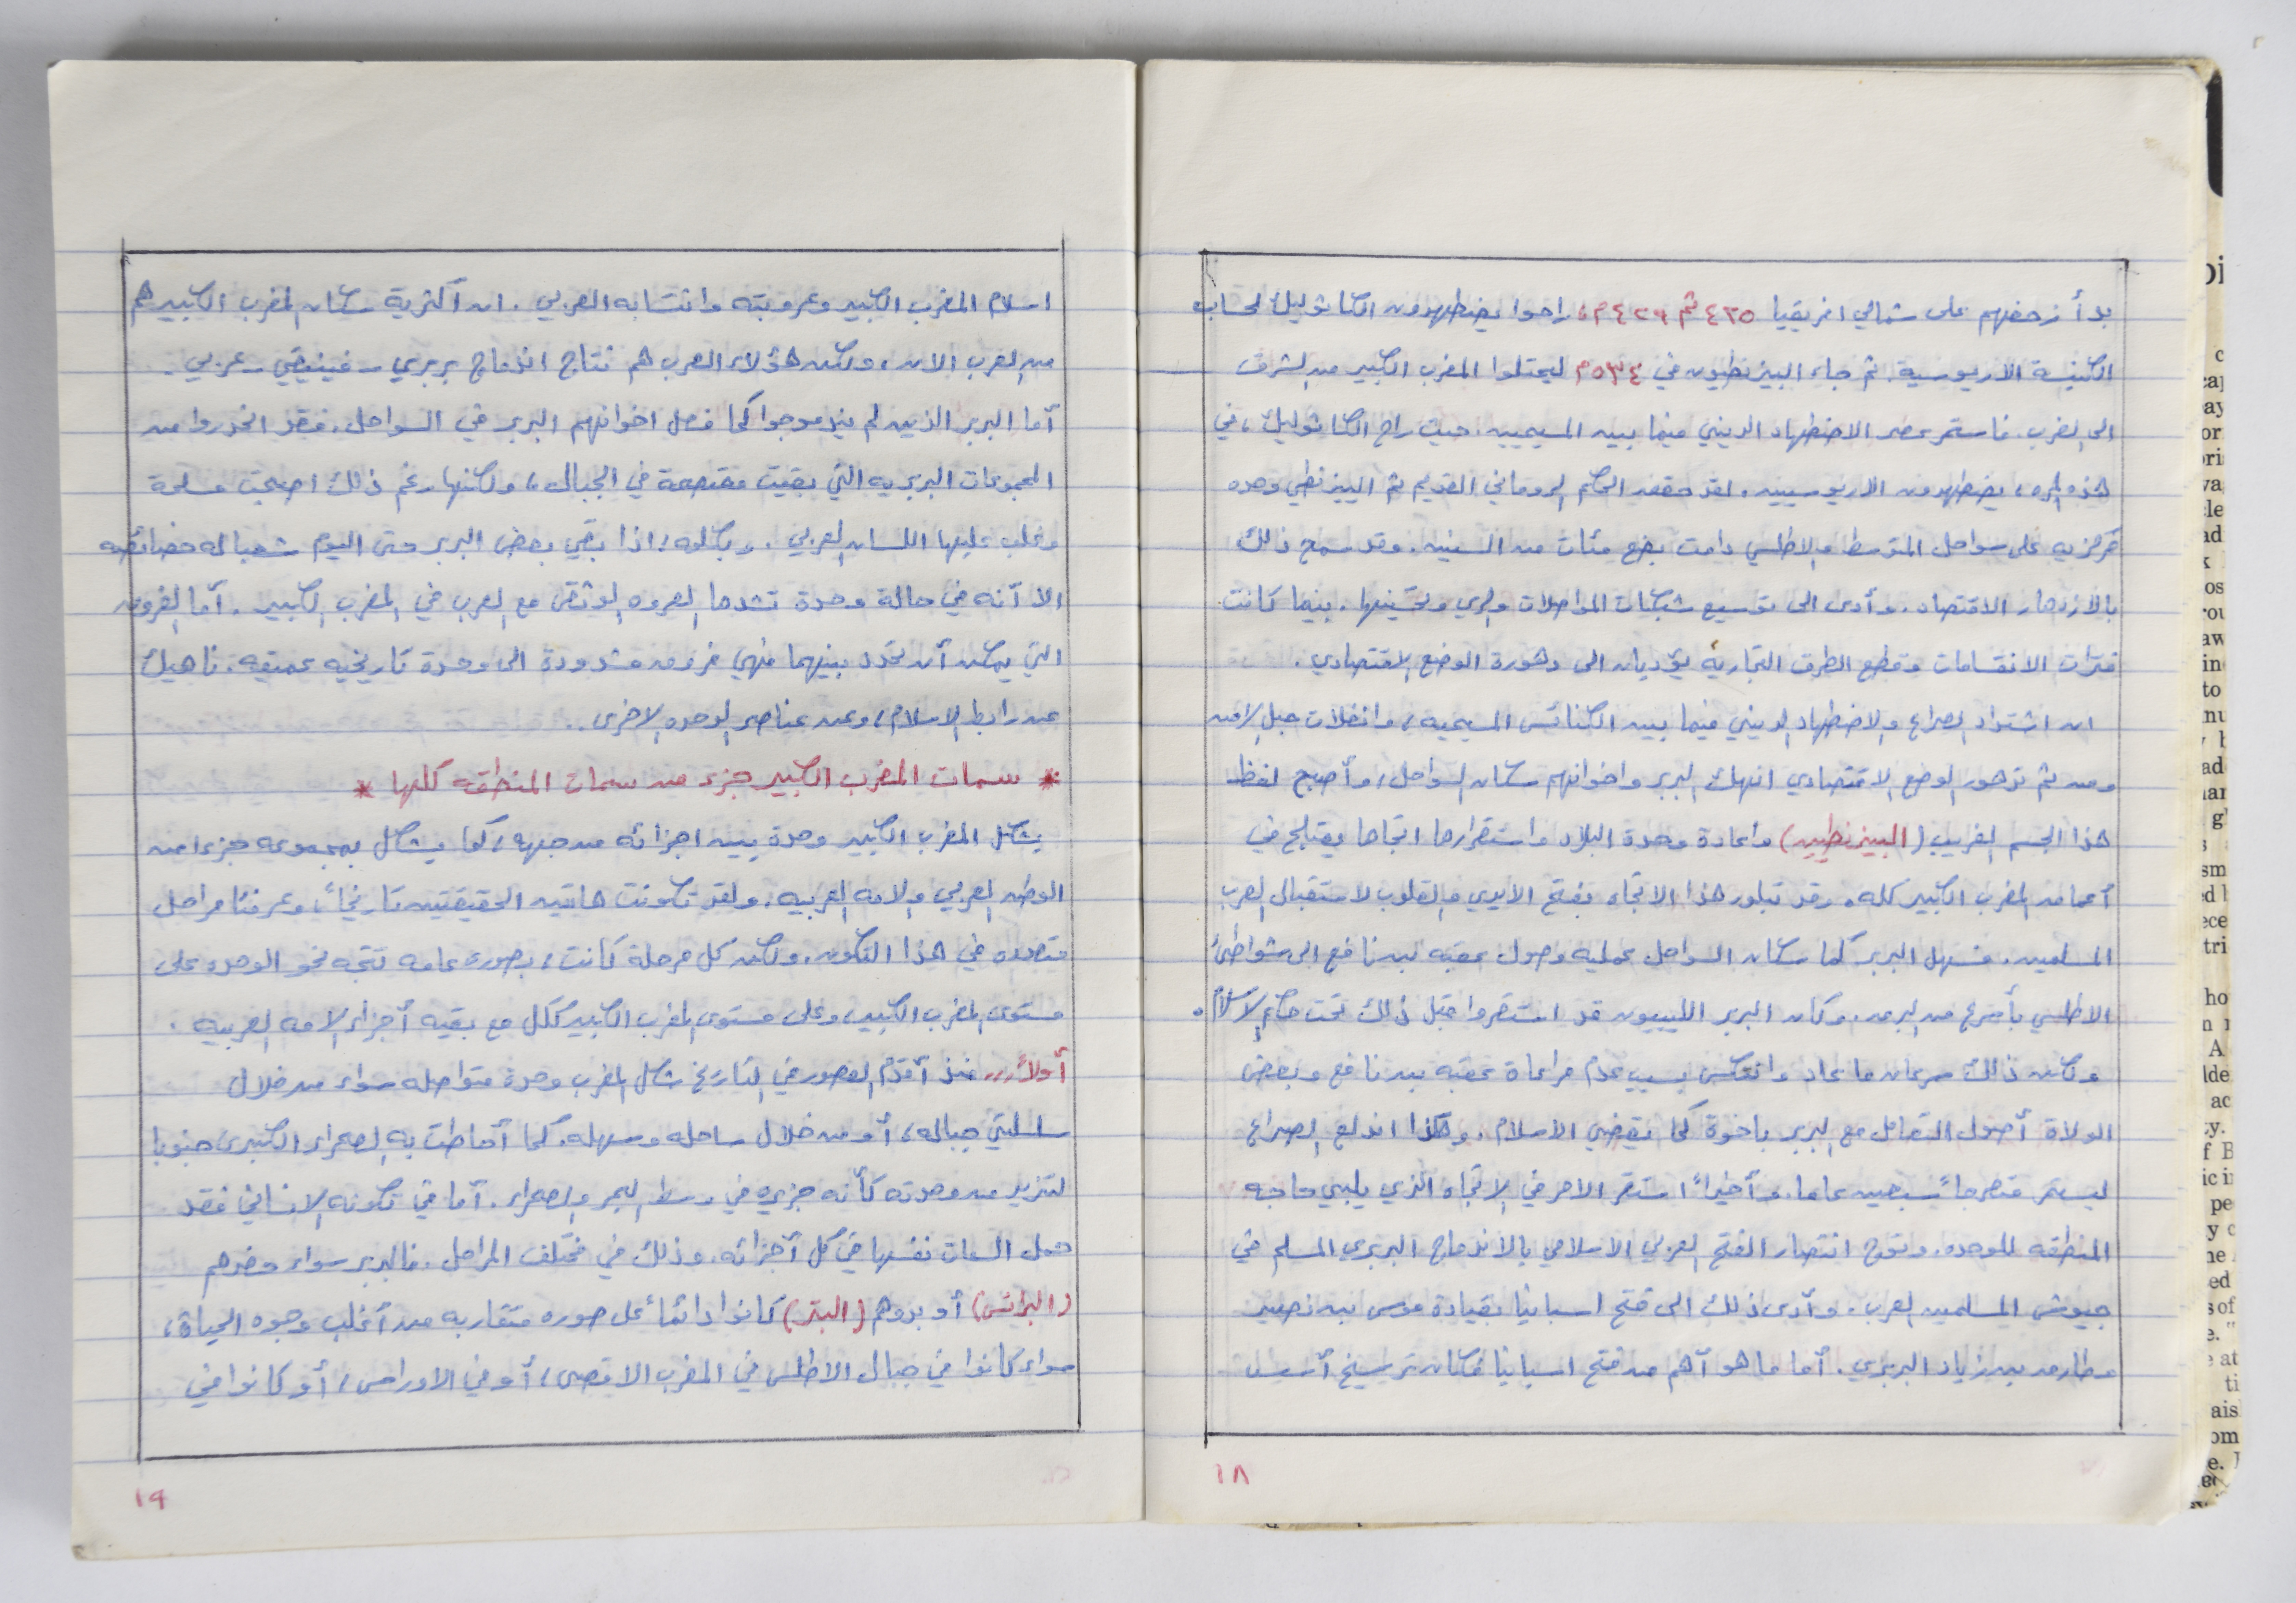 بدأ زحفهم على شمالي افريقيا ٤٢٥ ثم ٤٢٩م، راحوا يضطهدون الكاثوليك لحساب
الكنيسة الاريوسية. ثم جاء البيزنطيون في ٥٣٤م ليحتلوا المغرب الكبير من الشرق
الى الغرب. فاستمر عصر الاضطهاد الديني فيما بين المسيحيين. حيث راح الكاثوليك، في
هذه المره، يضطهدون الاريوسيين. لقد حقق الحكم الروماني القديم ثم البيزنطي وحده
مركزيه على سواحل المتوسط والاطلسي دامت بضع مئات من السنين. وقد سمح ذلك
بالازدهار الاقتصاد. وأدى الى توسيع شبكات المواصلات والري وتحسينها. بينما كانت
فترات الانقسامات وقطع الطرق التجارية يؤديان الى دهورة الوضع الاقتصادي.
ان اشتداد الصراع والاضطهاد الديني فيما بين الكنائس المسيحيه، وانفلات حبل الامن
ومن ثم تدهور الوضع الاقتصادي انهك البربر واخوانهم سكان السواحل، وأصبح لفظ
هذا الجسم الغريب (البيزنطيين) واعادة وحدة البلاد واستقرارها اتجاها يعتلج في
أعماق المغرب الكبير كله. وقد تبلور هذا الاتجاه بفتح الايدي والقلوب لاستقبال العرب
المسلمين. فسهل البربر كما سكان السواحل عمليه وصول عقبه بن نافع الى شواطئ
الاطلسي بأسرع من البرق. وكان البربر الليبيون قد استقروا قبل ذلك تحت حكم الاسلام.
ولكن ذلك سرعان ما عاد وانعكس بسبب عدم مراعاة عقبه بن نافع وبعض
الولاة أصول التعامل مع البربر باخوة كما يقضي الاسلام. وهكذا اندلع الصراع
ليستمر قصرحا سبعين عاما. وأخيراً استقر الامر في الاتجاه الذي يلبي حاجه
المنطقه للوحده. وتوج انتصار الفتح العربي الاسلامي بالاندماج البربري المسلم في
جيوش المسلمين العرب. وأدى ذلك الى فتح اسبانيا بقيادة موسى بن نصير
وطارق بن زياد البربري. أما ما هو أهم من فتح اسبانيا فكان ترسيخ أسس
١٨
اسلام المغرب الكبير وعروبته وانتسابه العربي. ان أكثرية سكان المغرب الكبير هم
من العرب الان، ولكن هؤلاء العرب هم نتاج اندماج بربري - فينيقي - عربي.
أما البربر الذين لم يندمجوا كما فعل اخوانهم البربر في السواحل. فقد انحدروا من
المجموعات البربريه التي بقيت معتصمة في الجبال، ولكنها رغم ذلك اصبحت مسلمة
وغلب عليها اللسان العربي. وبكلمه، اذا بقي بعض البربر حتى اليوم شعبا له خصائصه
الا أنه في حالة وحدة تشدها العروه الوثقى مع العرب في المغرب الكبير. أما الفروق
التي يمكن أن تحدد بينهما فهي فروق مشدودة الى وحدة تاريخيه عميقه. ناهيك
عن رابط الاسلام، وعن عناصر الوحده الاخرى..
* سمات المغرب الكبير جزء من سمات المنطقه كلها *
يشكل المغرب الكبير وحدة بين اجزائه من جهه، كما يشكل بمجموعه جزءا من
الوطن العربي والامه العربيه. ولقد تكونت هاتين الحقيقتين تاريخاً، وعرفتا مراحل
متعدده في هذا التكون. ولكن كل مرحلة كانت، بصوره عامه تتجه نحو الوحده على
مستوى المغرب الكبير، وعلى مستوى المغرب الكبير ككل مع بقيه أجزاء الامه العربيه.
أولاً... منذ أقدم العصور في التاريخ شكل المغرب وحدة متواصله سواء من خلال
سلسلتي جباله، أو من خلال ساحله وسهله. كما أحاطت به الصحراء الكبرى جنوبا
لتزيد من وحدته كأنه جزيره في وسط البحر والصحراء. أما في تكونه الانساني فقد
حمل السمات نفسها في كل أجزائه. وذلك في مختلف المراحل. فالبربر سواء حضرهم
(البرانس) أو بدوهم (البتر) كانوا دائماً على صوره متقاربه من أغلب وجوه الحياة،
سواء كانوا في جبال الاطلس في المغرب الاقصى، أو في الاوراس، أو كانوا في
١٩